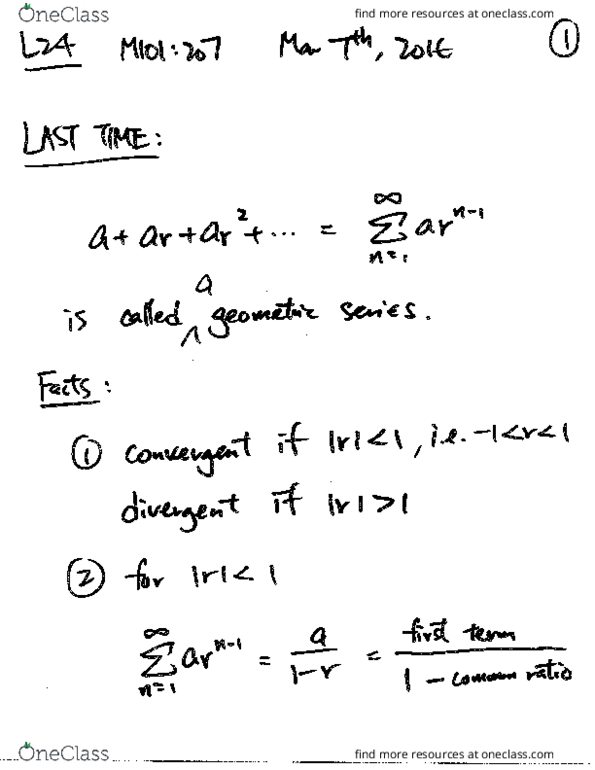 OneClass find more resources at oneclass.com
L24 M101:207 Mar 7th, 2016 ①
LAST TIME:
a + ar + ar² + ... = ∑_{n=1}^{∞} ar^{n-1}
is called a geometric series.
Facts:
① convergent if |r| < 1, i.e. -1 < r < 1
divergent if |r| > 1
② for |r| < 1
∑_{n=1}^{∞} ar^{n-1} = a/(1-r) = first term/(1 - common ratio)
OneClass find more resources at oneclass.com